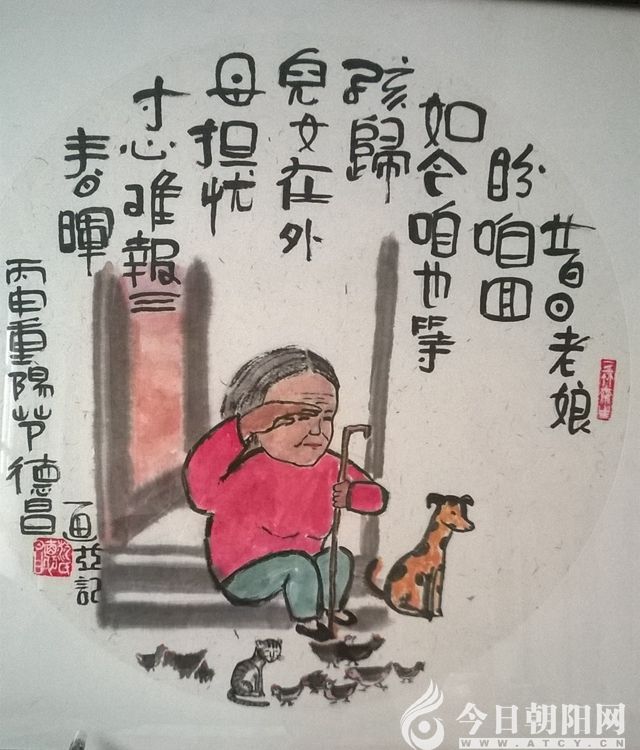 昔日老娘
盼咱回
如今咱也等
孩歸
兒女在外
母担忧
寸心难報三
春暉
丙申重陽节德昌
画並記
今日朝阳网
WWW.ATCY.CN